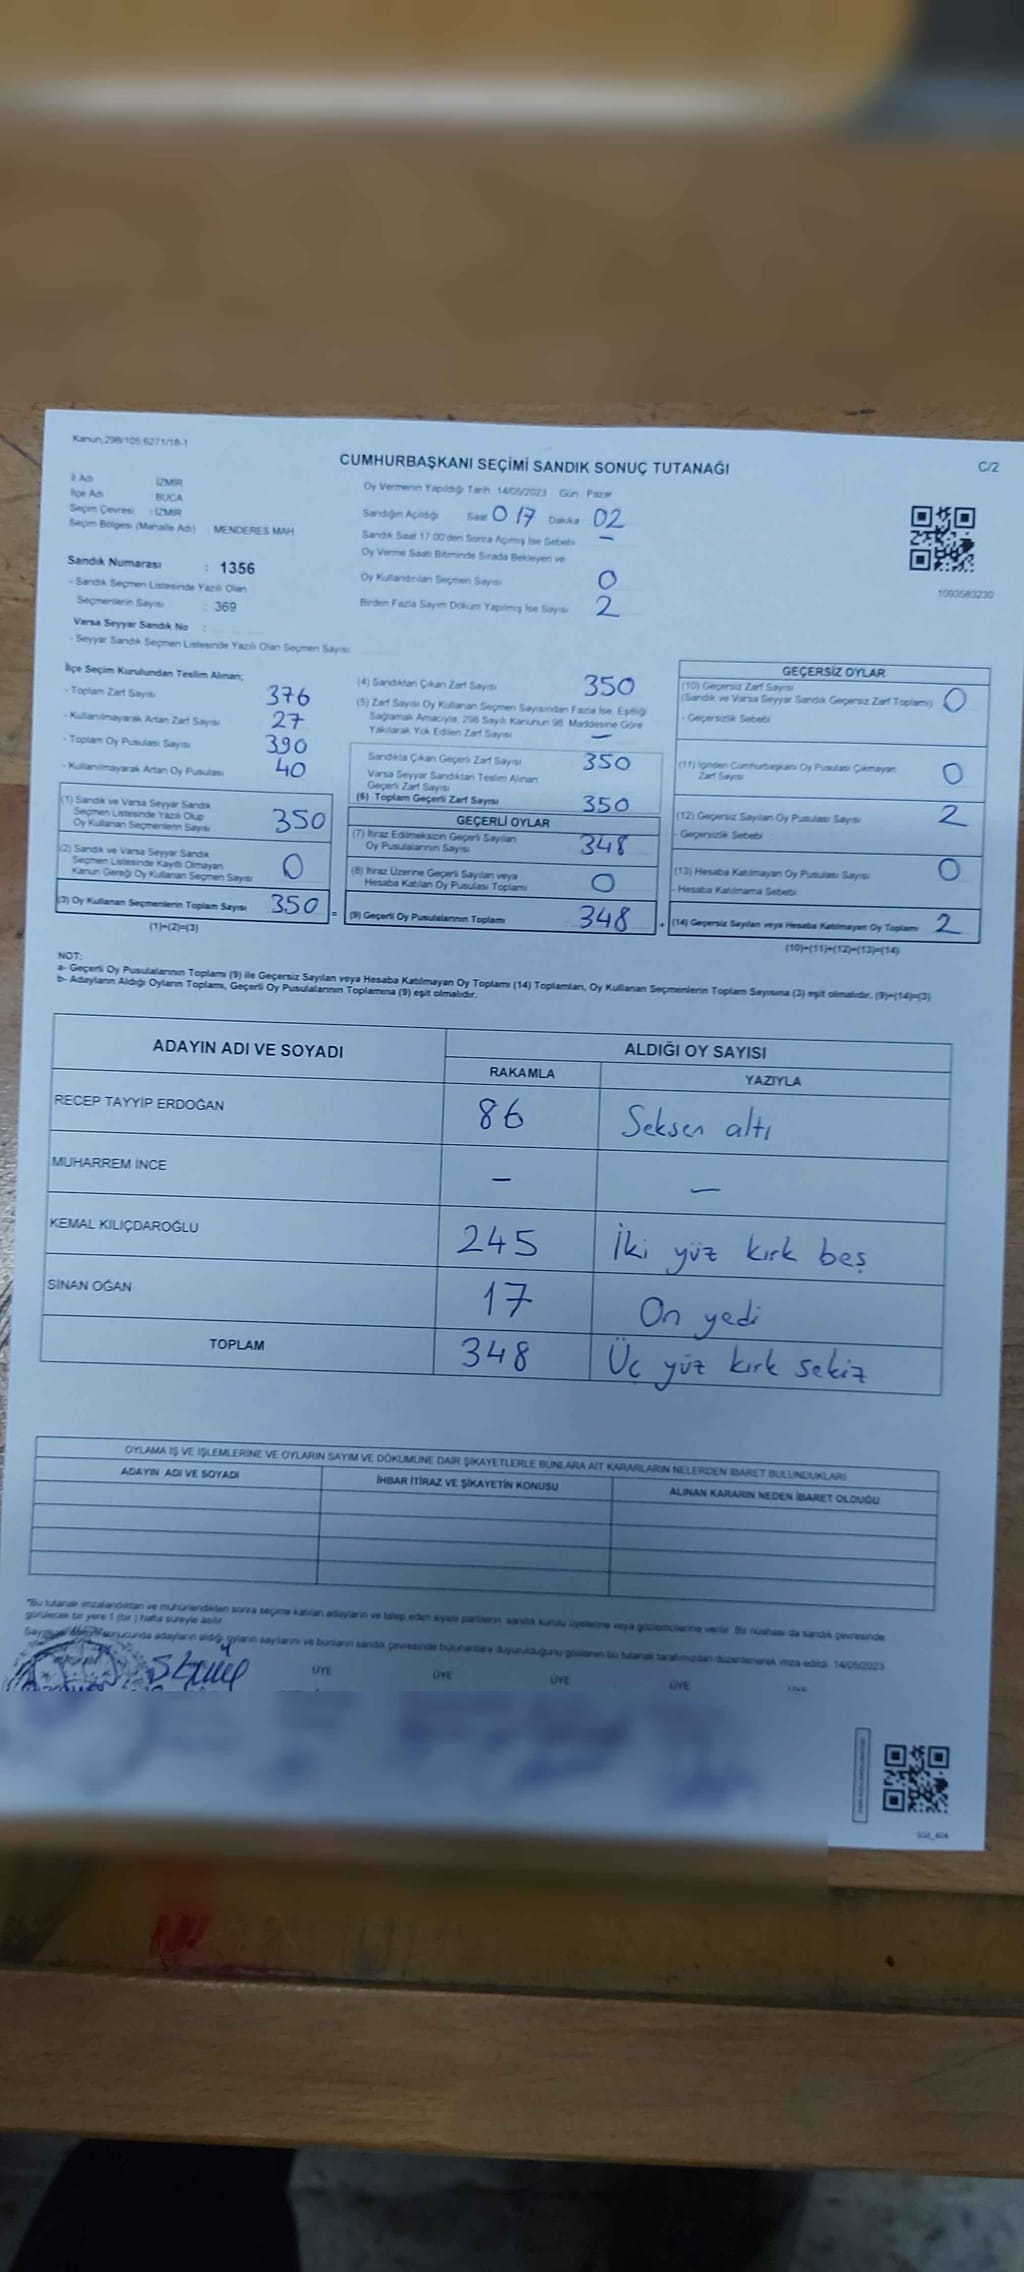 Kanun;298/105,6271/18-1
CUMHURBAŞKANI SEÇİMİ SANDIK SONUÇ TUTANAĞI
C/2
İl Adı İZMİR
İlçe Adı BUCA
Seçim Çevresi : İZMİR
Seçim Bölgesi (Mahalle Adı) MENDERES MAH
Oy Vermenin Yapıldığı Tarih 14/05/2023 Gün : Pazar
Sandığın Açıldığı Saat 0 17 Dakika 02
Sandık Saat 17:00'den Sonra Açmış İse Sebebi —
Oy Verme Saati Bitiminde Sırada Bekleyen ve
Oy Kullandırılan Seçmen Sayısı 0
Birden Fazla Sayım Döküm Yapılmış İse Sayısı 2
1093583230
Sandık Numarası : 1356
- Sandık Seçmen Listesinde Yazılı Olan
Seçmenlerin Sayısı : 369
Varsa Seyyar Sandık No :
- Seyyar Sandık Seçmen Listesinde Yazılı Olan Seçmen Sayısı
İlçe Seçim Kurulundan Teslim Alınan;
- Toplam Zarf Sayısı 376
- Kullanılmayarak Artan Zarf Sayısı 27
- Toplam Oy Pusulası Sayısı 390
- Kullanılmayarak Artan Oy Pusulası 40
(1) Sandık ve Varsa Seyyar Sandık
Seçmen Listesinde Yazılı Olup
Oy Kullanan Seçmenlerin Sayısı 350
(2) Sandık ve Varsa Seyyar Sandık
Seçmen Listesinde Kayıtlı Olmayan
Kanun Gereği Oy Kullanan Seçmen Sayısı 0
(3) Oy Kullanan Seçmenlerin Toplam Sayısı 350
(1)+(2)=(3)
(4) Sandıktan Çıkan Zarf Sayısı 350
(5) Zarf Sayısı Oy Kullanan Seçmen Sayısından Fazla İse, Eşitliği
Sağlamak Amacıyla, 298 Sayılı Kanunun 98. Maddesine Göre
Yakılarak Yok Edilen Zarf Sayısı —
Sandıkta Çıkan Geçerli Zarf Sayısı 350
Varsa Seyyar Sandıktan Teslim Alınan
Geçerli Zarf Sayısı
(6) Toplam Geçerli Zarf Sayısı 350
GEÇERLİ OYLAR
(7) İtiraz Edilmeksizin Geçerli Sayılan
Oy Pusulalarının Sayısı 348
(8) İtiraz Üzerine Geçerli Sayılan veya
Hesaba Katılan Oy Pusulası Toplamı 0
= (9) Geçerli Oy Pusulalarının Toplamı 348
GEÇERSİZ OYLAR
(10) Geçersiz Zarf Sayısı
(Sandık ve Varsa Seyyar Sandık Geçersiz Zarf Toplamı) 0
- Geçersizlik Sebebi
(11) İçinden Cumhurbaşkanı Oy Pusulası Çıkmayan
Zarf Sayısı 0
(12) Geçersiz Sayılan Oy Pusulası Sayısı 2
- Geçersizlik Sebebi
(13) Hesaba Katılmayan Oy Pusulası Sayısı 0
- Hesaba Katılmama Sebebi
+ (14) Geçersiz Sayılan veya Hesaba Katılmayan Oy Toplamı 2
(10)+(11)+(12)+(13)=(14)
NOT:
a- Geçerli Oy Pusulalarının Toplamı (9) ile Geçersiz Sayılan veya Hesaba Katılmayan Oy Toplamı (14) Toplamları, Oy Kullanan Seçmenlerin Toplam Sayısına (3) eşit olmalıdır. (9)+(14)=(3)
b- Adayların Aldığı Oyların Toplamı, Geçerli Oy Pusulalarının Toplamına (9) eşit olmalıdır.
ADAYIN ADI VE SOYADI ALDIĞI OY SAYISI
RAKAMLA YAZIYLA
RECEP TAYYİP ERDOĞAN 86 Seksen altı
MUHARREM İNCE — —
KEMAL KILIÇDAROĞLU 245 İki yüz kırk beş
SİNAN OĞAN 17 On yedi
TOPLAM 348 Üç yüz kırk sekiz
OYLAMA İŞ VE İŞLEMLERİNE VE OYLARIN SAYIM VE DÖKÜMÜNE DAİR ŞİKAYETLERLE BUNLARA AİT KARARLARIN NELERDEN İBARET BULUNDUKLARI
ADAYIN ADI VE SOYADI İHBAR İTİRAZ VE ŞİKAYETİN KONUSU ALINAN KARARIN NEDEN İBARET OLDUĞU
*Bu tutanak imzalandıktan ve mühürlendikten sonra seçime katılan adayların ve talep eden siyasi partilerin sandık kurulu üyelerine veya gözlemcilerine verilir. Bir nüshası da sandık çevresinde
görülecek bir yere 1 (bir ) hafta süreyle asılır.
sonucunda adayların aldığı oyların sayılarını ve bunların sandık çevresinde bulunanlara duyurulduğunu gösteren bu tutanak tarafımızdan düzenlenerek imza edildi. 14/05/2023
ÜYE ÜYE ÜYE ÜYE